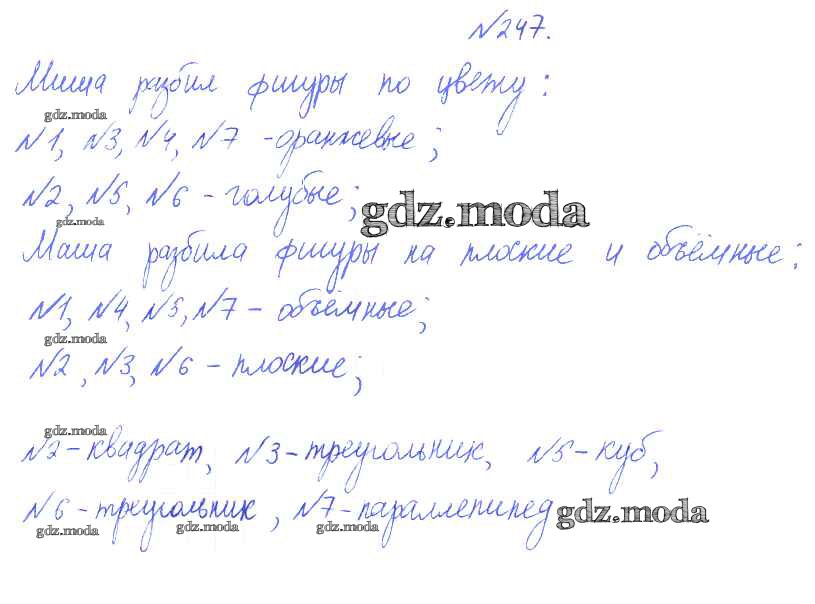 №247.
Миша разбил фигуры по цвету:
gdz.moda
№1, №3, №4, №7 - оранжевые;
№2, №5, №6 - голубые; gdz.moda
gdz.moda
Маша разбила фигуры на плоские и объёмные:
№1, №4, №5, №7 - объёмные;
gdz.moda
№2, №3, №6 - плоские;
gdz.moda
№2 - квадрат, №3 - треугольник, №5 - куб,
№6 - треугольник, №7 - параллепипед gdz.moda
gdz.moda gdz.moda gdz.moda